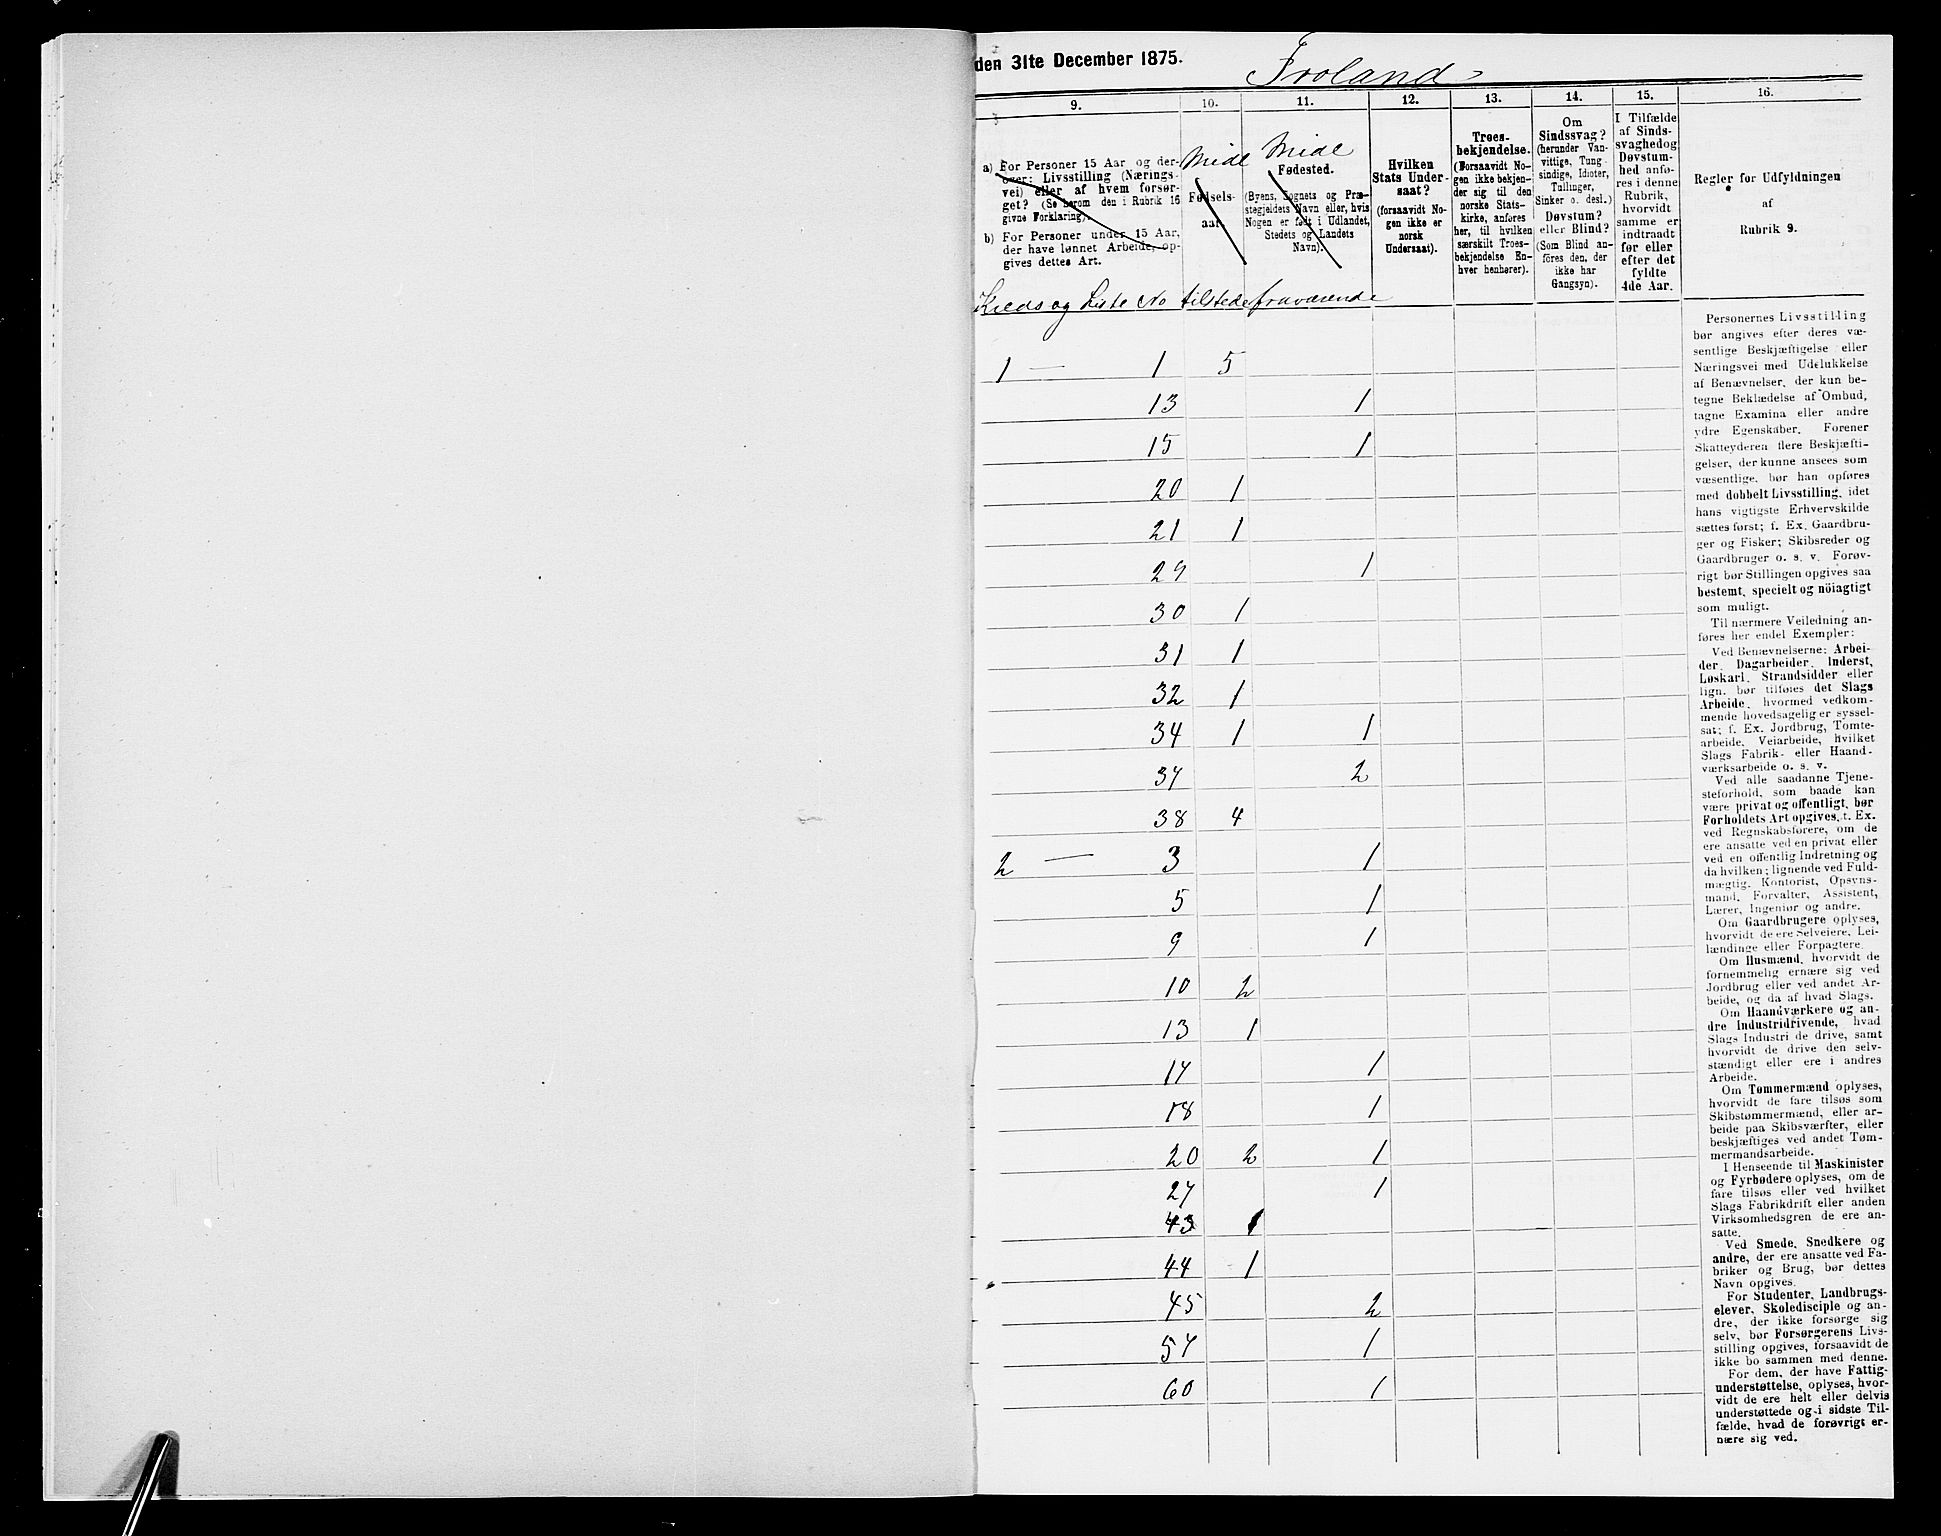 den 31te December 1875.
Froland
9. 10. 11. 12. 13. 14. 15. 16.
a) For Personer 15 Aar og der-
over: Livsstilling (Nærings-
vei) eller af hvem forsør-
get? (Se herom den i Rubrik 16
givne Forklaring).
b) For Personer under 15 Aar,
der have lønnet Arbeide, op-
gives dettes Art.
Midl
Fødsels-
aar.
Midl
Fødested.
(Byens, Sognets og Præ-
stegjeldets Navn eller, hvis
Nogen er født i Udlandet,
Stedets og Landets
Navn).
Hvilken
Stats Under-
saat?
(forsaavidt No-
gen ikke er
norsk
Undersaat).
Troes-
bekjendelse.
(Forsaavidt No-
gen ikke bekjen-
der sig til den
norske Stats-
kirke, anføres
her, til hvilken
særskilt Troes-
bekjendelse En-
hver henhører).
Om
Sindssvag?
(herunder Van-
vittige, Tung-
sindige, Idioter,
Tullinger,
Sinker o. desl.)
Døvstum?
eller Blind?
(Som Blind an-
føres den, der
ikke har
Gangsyn).
I Tilfælde
af Sinds-
svaghed og
Døvstum-
hed anfø-
res i denne
Rubrik,
hvorvidt
samme er
indtraadt
før eller
efter det
fyldte
4de Aar.
Regler for Udfyldningen
af
Rubrik 9.
Kreds og Liste No tilstede fraværende
1 — 1 5
13 1
15 1
20 1
21 1
27 1
30 1
31 1
32 1
34 1 1
37 2
38 4
2 — 3 1
5 1
9 1
10 2
13 1
17 1
18 1
20 2 1
27 1
43 1
44 1
45 2
57 1
60 1
Personernes Livsstilling
bør angives efter deres væ-
sentlige Beskjæftigelse eller
Næringsvei med Udelukkelse
af Benævnelser, der kun be-
tegne Beklædelse af Ombud,
tagne Examina eller andre
ydre Egenskaber. Forener
Skatteyderen flere Beskjæfti-
gelser, der kunne ansees som
væsentlige, bør han opføres
med dobbelt Livsstilling, idet
hans vigtigste Erhvervskilde
sættes først; f. Ex. Gaardbru-
ger og Fisker; Skibsreder og
Gaardbruger o. s. v. Forøv-
rigt bør Stillingen opgives saa
bestemt, specielt og nöiagtigt
som muligt.
Til nærmere Veiledning an-
føres her endel Exempler:
Ved Benævnelserne: Arbei-
der, Dagarbeider, Inderst,
Løskarl, Strandsidder eller
lign. bør tilføies det Slags
Arbeide, hvormed vedkom-
mende hovedsagelig er syssel-
sat; f. Ex. Jordbrug, Tomte-
arbeide, Veiarbeide, hvilket
Slags Fabrik- eller Haand-
værksarbeide o. s. v.
Ved alle saadanne Tjene-
steforhold, som baade kan
være privat og offentligt, bør
Forholdets Art opgives, t. Ex.
ved Regnskabsførere, om de
ere ansatte ved en privat eller
ved en offentlig Indretning og
da hvilken; lignende ved Fuld-
mægtig, Kontorist, Opsyns-
mand, Forvalter, Assistent,
Lærer, Ingeniør og andre.
Om Gaardbrugere oplyses,
hvorvidt de ere Selveiere, Lei-
lændinge eller Forpagtere.
Om Husmænd, hvorvidt de
fornemmelig ernære sig ved
Jordbrug eller ved andet Ar-
beide, og da af hvad Slags.
Om Haandværkere og an-
dre Industridrivende, hvad
Slags Industri de drive, samt
hvorvidt de drive den selv-
stændigt eller ere i andres
Arbeide.
Om Tømmermænd oplyses,
hvorvidt de fare tilsøs som
Skibstømmermænd, eller ar-
beide paa Skibsværfter, eller
beskjæftiges ved andet Tøm-
mermandsarbeide.
I Henseende til Maskinister
og Fyrbødere oplyses, om de
fare tilsøs eller ved hvilket
Slags Fabrikdrift eller anden
Virksomhedsgren de ere an-
satte.
Ved Smede, Snedkere og
andre, der ere ansatte ved Fa-
briker og Brug, bør dettes
Navn opgives.
For Studenter, Landbrugs-
elever, Skoledisciple og an-
dre, der ikke forsørge sig
selv, bør Forsørgerens Livs-
stilling opgives, forsaavidt de
ikke bo sammen med denne.
For dem, der have Fattig-
understøttelse, oplyses, hvor-
vidt de ere helt eller delvis
understøttede og i sidste Til-
fælde, hvad de forøvrigt er-
nære sig ved.